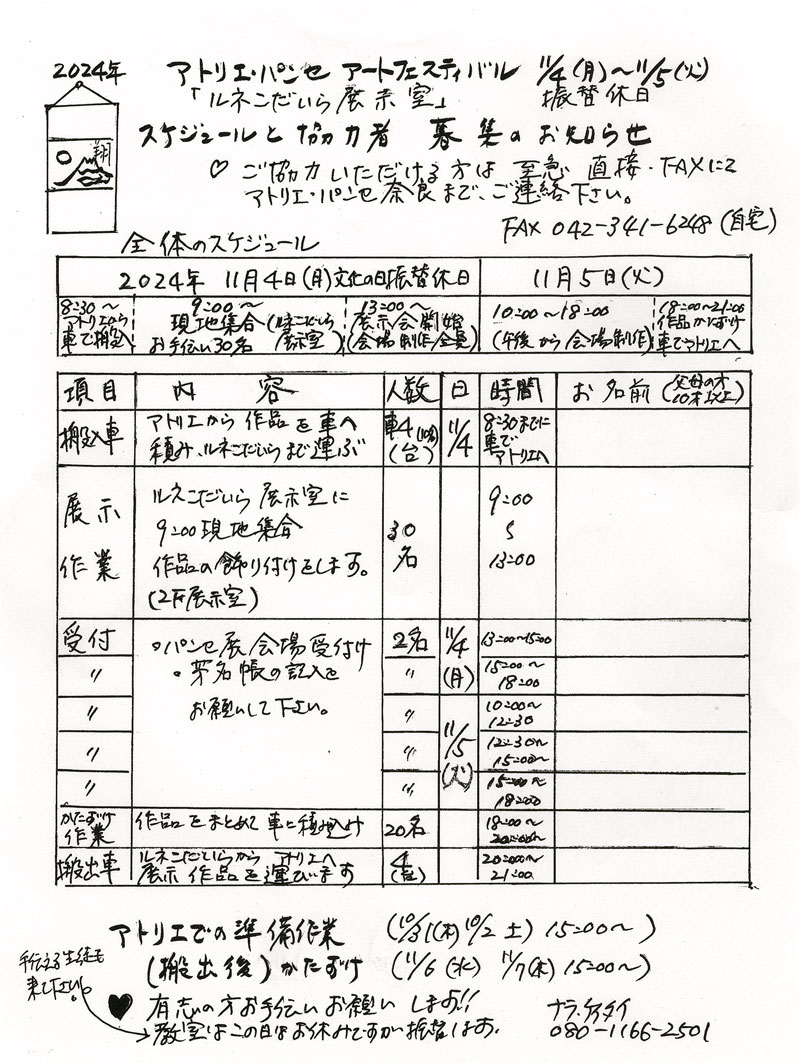 2024年 アトリエ・パンセ アートフェスティバル 11/4(月)〜11/5(火)
「ルネこだいら展示室」 振替休日
スケジュールと協力者 募集のお知らせ
翔
♡ ご協力いただける方は至急 直接・FAXにて
アトリエ・パンセ奈良まで、ご連絡下さい。
FAX 042-341-6248(自宅)
全体のスケジュール
2024年 11月4日(月)文化の日振替休日 11月5日(火)
8:30〜 アトリエから 車で搬入
9:00〜 現地集合(ルネこだいら展示室) お手伝い30名
13:00〜 展示会開始 (会場制作/全員)
10:00〜18:00 (午後から会場制作)
18:00〜21:00 作品かたずけ 車でアトリエへ
項目 内容 人数 日 時間 お名前(父母の才10才以上)
搬入車 アトリエから作品を車へ 積み、ルネこだいらまで運ぶ 車4(台) 11/4 8:30までに 車で アトリエへ
展示作業 ルネこだいら展示室に 30名 9:00
9:00現地集合 〜
作品の飾り付けをします。 13:00
(2F展示室)
受付 ○パンセ展会場受付け 2名 11/4 13:00〜15:00
〃 ・芳名帳の記入を 〃 (月) 15:00〜18:00
〃 お願いして下さい。 〃 11/5 10:00〜12:30
〃 〃 (火) 12:30〜15:00
〃 〃 15:00〜18:00
かたずけ作業 作品をまとめて車に積み込け 20名 18:00〜20:00〜
搬出車 ルネこだいらから アトリエへ 展示作品を運びます 4(台) 20:00〜21:00
アトリエでの準備作業 (10/31(木) 10/2 土) 15:00〜)
(搬出後)かたずけ (11/6(水) 11/7(木) 15:00〜)
手伝える生徒も来て下さい。
♥ 有志の方お手伝いお願いします!!
→教室はこの日はお休みですが振替はます.
ナラ.ケイタイ
080-1166-2501